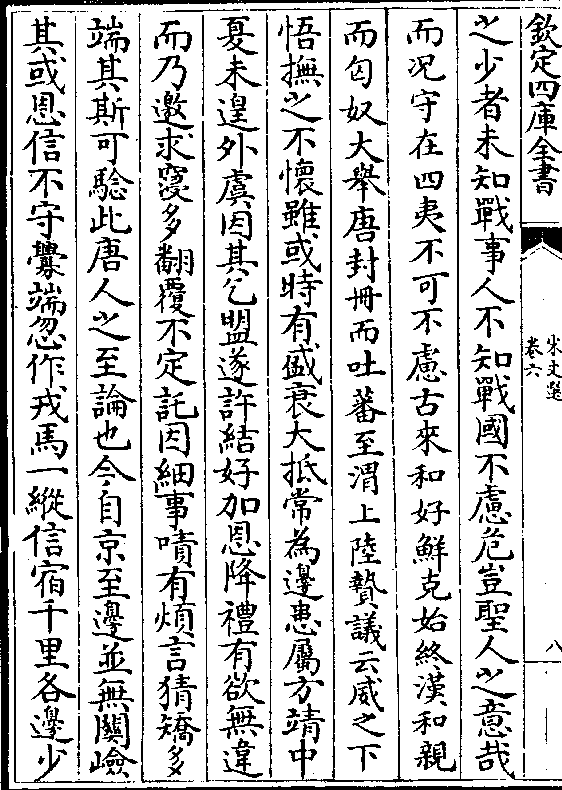 欽定四庫全書
宋文選
卷六
八
之少者未知戰事人不知戰國不慮危豈聖人之意哉
而况守在四夷不可不慮古來和好鮮克始終漢和親
而匈奴大舉唐封冊而吐蕃至渭上陸贄議云威之下
悟撫之不懷雖或時有盛衰大抵常為邊患屬方靖中
夏未遑外虞因其乞盟遂許結好加恩降禮有欲無違
而乃邀求寖多翻覆不定託因細事嘖有煩言猜矯多
端其斯可騐此唐人之至論也今自京至邊並無關嶮
其或恩信不守釁端忽作戎馬一縱信宿千里各邊少